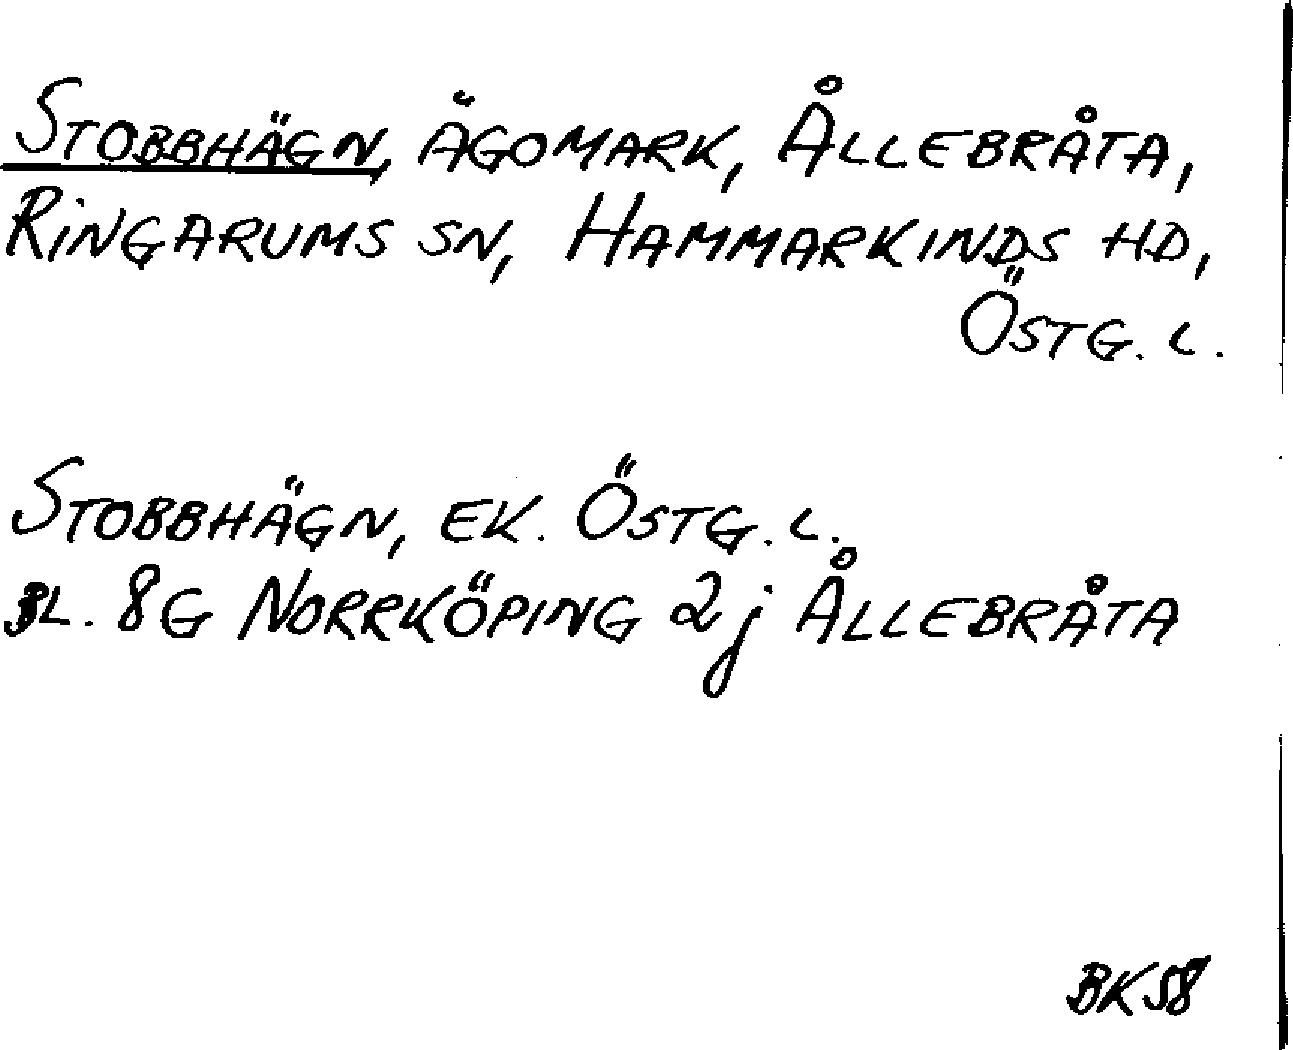 STOBBHÄGN, ÄGOMARK, ÅLLEBRÅTA,
RINGARUMS SN, HAMMARKINDS HD,
ÖSTG. L.
STOBBHÄGN, EK. ÖSTG. L.
BL. 8G NORRKÖPING 2j ÅLLEBRÅTA
BK58